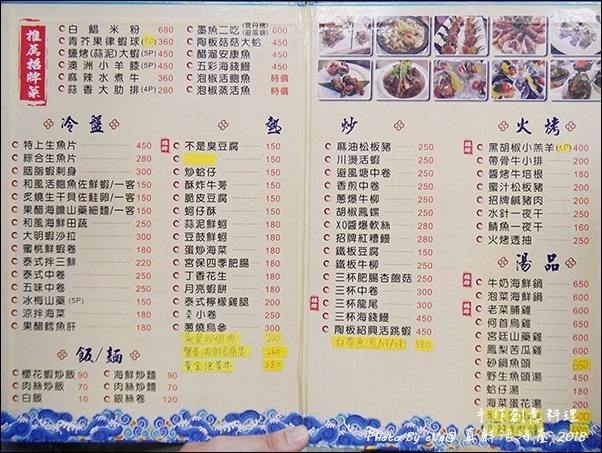 推薦招牌菜
白鯧米粉 680
青芥果律蝦球(5P) 360
鹽烤(蒜泥)大蝦(5P) 450
澳洲小羊膝(5P) 450
麻辣水煮牛 360
蒜香大肋排(4P) 280
墨魚二吃 600
陶板菇菇大蛤 450
醋溜安康魚 450
五彩海錢鰻 450
泡椒活龍魚 時價
泡椒蒸活魚 時價
冷盤
特上生魚片 450
綜合生魚片 280
胭脂蝦刺身 300
和風活鮑魚佐鮮蝦/一客 150
炙燒生干貝佐鮭卵/一客 150
果醋海膽山藥細麵/一客 150
和風海鮮田蔬 250
大明蝦沙拉 300
蜜桃鮮蝦卷 180
泰式拌三鮮 220
泰式中卷 250
五味中卷 250
冰梅山藥(5P) 150
涼拌海菜 180
果醋鱈魚肝 180
飯/麵
櫻花蝦炒飯 90
肉絲炒飯 70
白飯 10
海鮮炒麵 90
肉絲炒麵 70
銀絲卷 120
熱
招牌 不是臭豆腐 150
150
炒蛤仔 150
酥炸牛蒡 150
脆皮豆腐 150
蚵仔酥 150
蒜泥鮮蚵 180
豆鼓鮮蚵 180
蛋炒海菜 180
宮保四季肥腸 180
丁香花生 180
月亮蝦餅 180
泰式檸檬雞腿 200
小卷 200
蔥燒烏參 300
200
260
黃金泡菜牛 280
炒
麻油松板豬 250
川燙活蝦 250
避風塘中卷 250
香煎中卷 250
蔥爆牛柳 250
胡椒鳳螺 250
XO醬爆軟絲 250
招牌紅糟鰻 250
鐵板豆腐 150
鐵板牛柳 250
三杯肥腸杏鮑菇 250
三杯中卷 300
招牌 三杯龍尾 300
三杯海錢鰻 450
陶板紹興活跳蝦 450
580
火烤
招牌 黑胡椒小羔羊(4P) 400
帶骨牛小排 200
醬烤牛培根 180
蜜汁松板豬 180
招牌鹹豬肉 200
水針一夜干 250
鯖魚一夜干 150
火烤透抽 250
湯品
牛奶海鮮鍋 650
泡菜海鮮鍋 650
招牌 老菜脯雞 650
何首烏雞 650
宮廷山藥雞 650
鳳梨苦瓜雞 650
砂鍋魚頭 650
野生魚頭湯 450
蛤仔湯 150
海菜蛋花湯 150
千汀創意料理
Photo By eVa@ 真鮮活海產, 2018